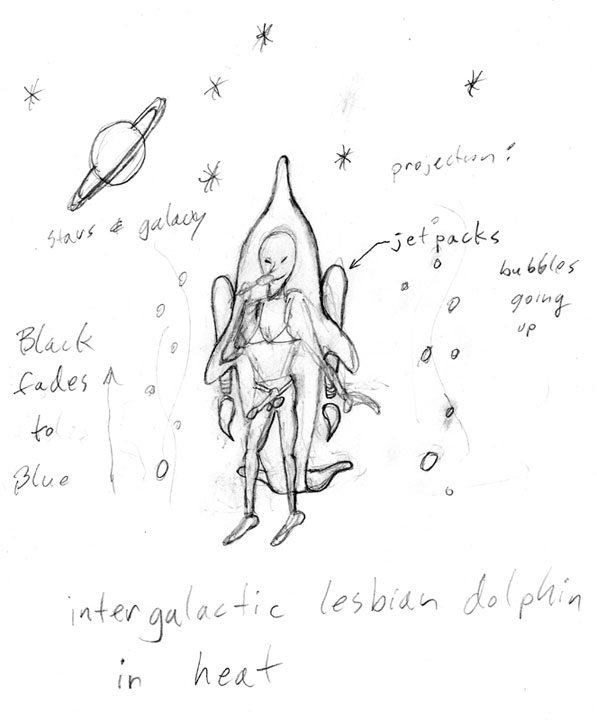 projection:
stars & galaxy
jetpacks
bubbles
going
up
Black
fades
to
Blue
intergalactic lesbian dolphin
in heat